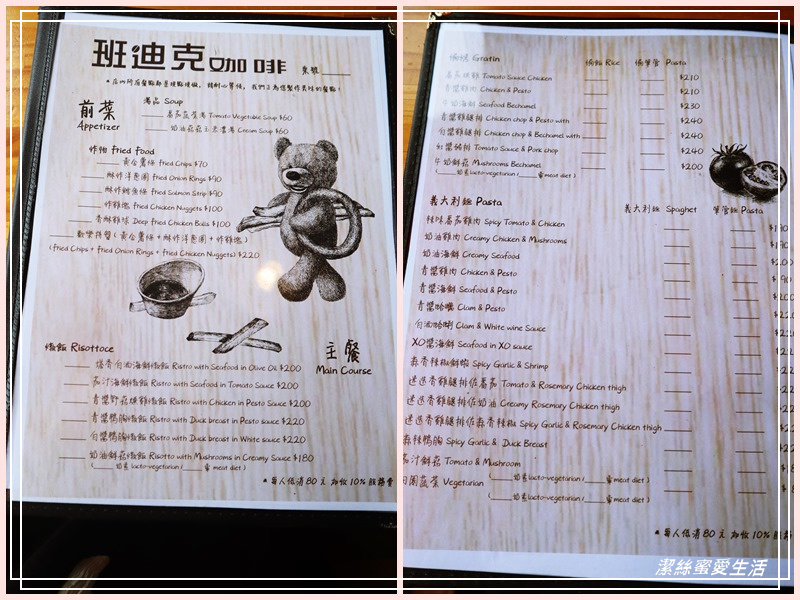 班迪克咖啡 桌號
前菜
Appetizer
湯品 Soup
番茄蔬菜湯 Tomato Vegetable Soup $60
奶油菇菇玉米濃湯 Cream Soup $60
炸物 Fried Food
黃金薯條 Fried Chips $70
酥炸洋蔥圈 Fried Onion Rings $90
酥炸鮭魚條 Fried Salmon Strip $90
炸雞塊 Fried Chicken Nuggets $100
香酥雞球 Deep Fried Chicken Balls $100
歡樂拼盤 (黃金薯條 + 酥炸洋蔥圈 + 炸雞塊)
(Fried Chips + Fried Onion Rings + Fried Chicken Nuggets) $220
主餐
Main Course
燉飯 Risottoce
蒜香白酒海鮮燉飯 Ristro with Seafood in Olive Oil $200
茄汁海鮮燉飯 Ristro with Seafood in Tomato Sauce $200
青醬野菇燻雞燉飯 Ristro with Chicken in Pesto Sauce $200
青醬鴨胸燉飯 Ristro with Duck breast in Pesto sauce $220
白醬鴨胸燉飯 Ristro with Duck breast in White sauce $220
奶油鮮菇燉飯 Risotto with Mushrooms in Creamy Sauce $180
(奶素 lacto-vegetarian / 葷 meat diet)
*每人低消 80 元 加收 10% 服務費
焗烤 Gratin 焗飯 Rice 焗筆管 Pasta
番茄燻雞 Tomato Sauce Chicken $210
青醬燻雞 Chicken & Pesto $210
牛奶海鮮 Seafood Bechamel $230
青醬雞腿排 Chicken chop & Pesto with $240
白醬雞腿排 Chicken chop & Bechamel with $240
紅醬豬排 Tomato Sauce & Pork chop $240
牛奶鮮菇 Mushrooms Bechamel $200
(奶素 lacto-vegetarian / 葷 meat diet)
義大利麵 Pasta 義大利麵 Spaghet 筆管麵 Pasta
辣味番茄雞肉 Spicy Tomato & Chicken $190
奶油雞肉 Creamy Chicken & Mushrooms
奶油海鮮 Creamy Seafood $200
青醬雞肉 Chicken & Pesto
青醬海鮮 Seafood & Pesto
青醬哈蠣 Clam & Pesto
白酒哈蜊 Clam & White wine Sauce
XO醬海鮮 Seafood in XO sauce
蒜香辣椒鮮蝦 Spicy Garlic & Shrimp
迷迭香雞腿排佐番茄 Tomato & Rosemary Chicken thigh
迷迭香雞腿排佐奶油 Creamy Rosemary Chicken thigh
迷迭香雞腿排佐蒜香辣椒 Spicy Garlic & Rosemary Chicken thigh
蒜辣鴨胸 Spicy Garlic & Duck Breast
茄汁鮮菇 Tomato & Mushroom
田園蔬菜 Vegetarian (奶素 lacto-vegetarian / 葷 meat diet)
(奶素 lacto-vegetarian / 葷 meat diet)
*每人低消 80 元 加收 10% 服務
潔絲蜜愛生活